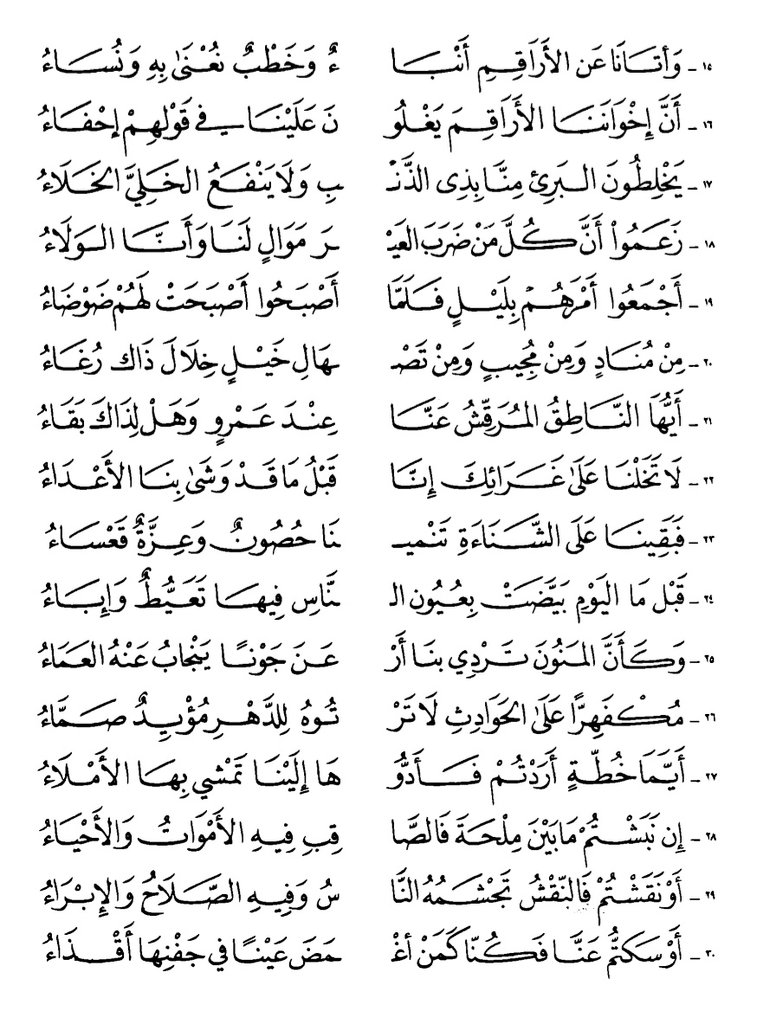 ١٥ - وَأَتَانَا عَنِ الأَرَاقِمِ أَنْبَا ءٌ وَخَطْبٌ نُعْنَىٰ بِهِ وَنُسَاءُ
١٦ - أَنَّ إِخْوَانَنَا الأَرَاقِمَ يَغْلُو نَ عَلَيْنَا فِي قَوْلِهِمْ إِحْفَاءُ
١٧ - يَخْلِطُونَ البَرِئَ مِنَّا بِذِى الذَّنْـ ـبِ وَلَا يَنْفَعُ الخَلِيَّ الخَلَاءُ
١٨ - زَعَمُواْ أَنَّ كُلَّ مَنْ ضَرَبَ العَيْـ ـرَ مَوَالٍ لَنَا وَأَنَّا الوَلَاءُ
١٩ - أَجْمَعُوا أَمْرَهُمْ بِلَيْلٍ فَلَمَّا أَصْبَحُوا أَصْبَحَتْ لَهُمْ ضَوْضَاءُ
٢٠ - مِنْ مُنَادٍ وَمِنْ مُجِيبٍ وَمِنْ تَصْـ ـهَالِ خَيْلٍ خِلَالَ ذَاكَ رُغَاءُ
٢١ - أَيُّهَا النَّاطِقُ المُرَقِّشُ عَنَّا عِنْدَ عَمْرٍو وَهَلْ لِذَاكَ بَقَاءُ
٢٢ - لَا تَخَلْنَا عَلَىٰ غَرَائِكَ إِنَّا قَبْلُ مَا قَدْ وَشَىٰ بِنَا الأَعْدَاءُ
٢٣ - فَبَقِينَا عَلَى الشَّنَاءَةِ تَنْمِيـ ـنَا حُصُونٌ وَعِزَّةٌ قَعْسَاءُ
٢٤ - قَبْلَ مَا اليَوْمِ بَيَّضَتْ بِعُيُونِ الـ ـنَّاسِ فِيهَا تَعَيُّطٌ وَإِبَاءُ
٢٥ - وَكَأَنَّ المَنُونَ تَرْدِي بِنَا أَرْ عَنَ جَوْنًا يَنْجَابُ عَنْهُ العَمَاءُ
٢٦ - مُكْفَهِرًّا عَلَى الحَوَادِثِ لَا تَرْ تُوهُ لِلدَّهْرِ مُؤْيِدٌ صَمَّاءُ
٢٧ - أَيَّمَا خُطَّةٍ أَرَدْتُمْ فَأَدُّو هَا إِلَيْنَا تَمْشِي بِهَا الأَمْلَاءُ
٢٨ - إِن نَبَشْتُمْ مَا بَيْنَ مِلْحَةَ فَالصَّا قِبِ فِيهِ الأَمْوَاتُ وَالأَحْيَاءُ
٢٩ - أَوْ نَقَشْتُمْ فَالنَّقْشُ تَجْشَمُهُ النَّا سُ وَفِيهِ الصَّلَاحُ وَالإِبْرَاءُ
٣٠ - أَوْ سَكَتُّمْ عَنَّا فَكُنَّا كَمَنْ أَغْـ ـمَضَ عَيْنًا فِي جَفْنِهَا أَقْذَاءُ